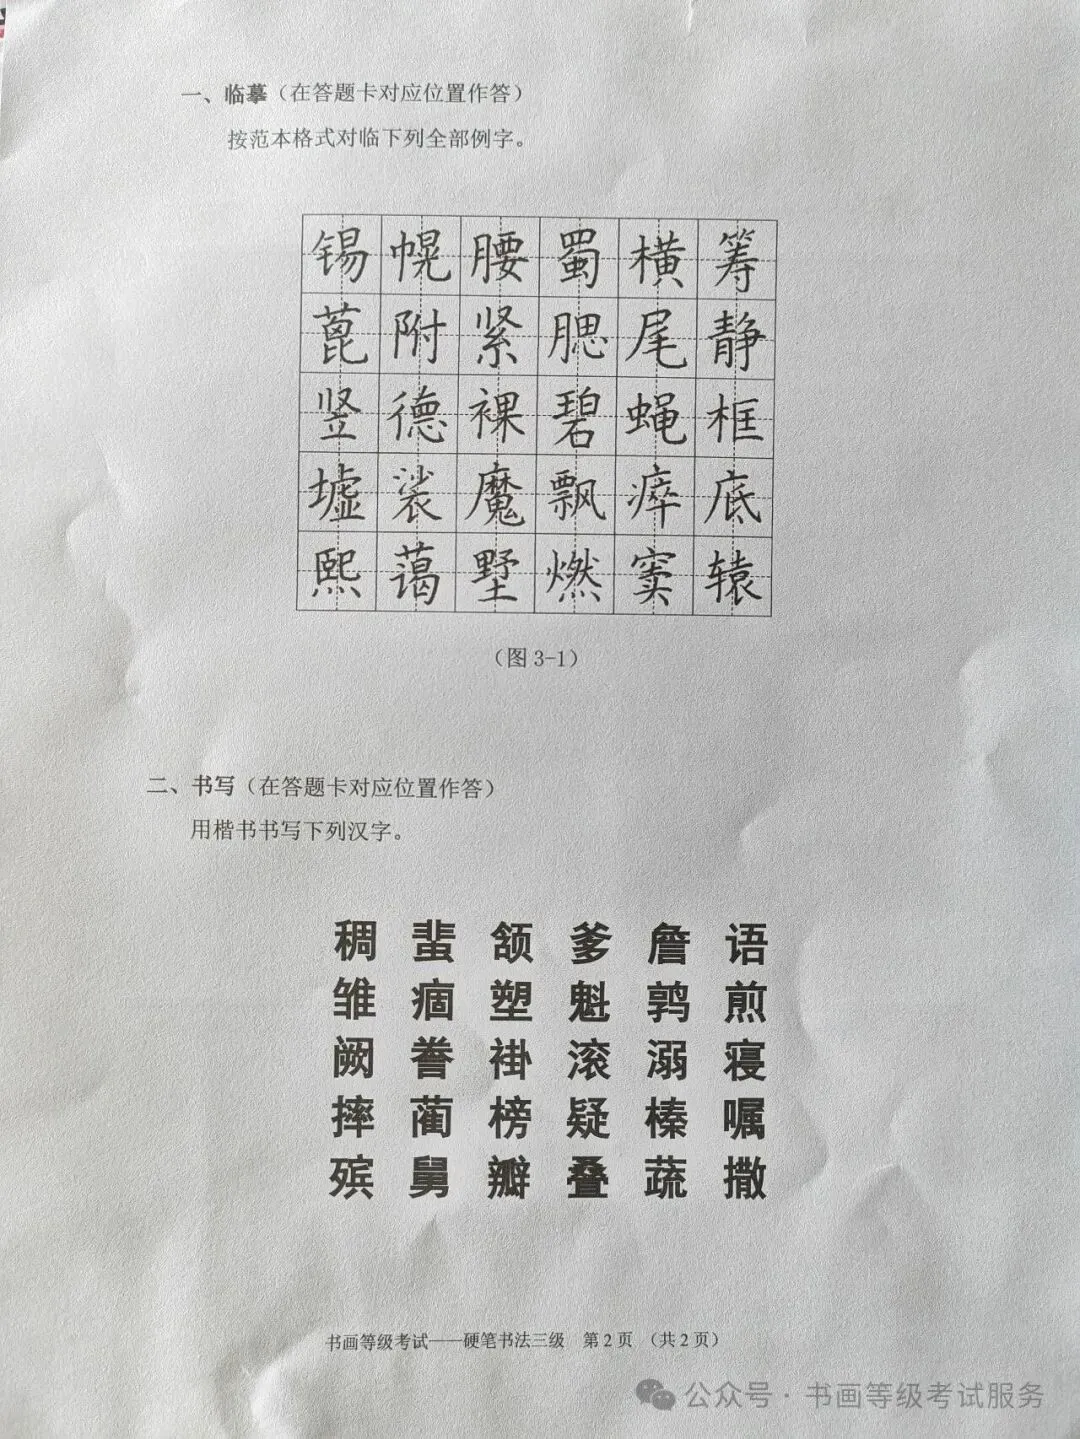 一、临摹（在答题卡对应位置作答）
按范本格式对临下列全部例字。
锡 幌 腰 蜀 横 筹
蓖 附 紧 腮 尾 静
竖 德 裸 碧 蝇 框
墟 裟 魔 飘 瘁 底
熙 蔼 墅 燃 窦 辕
（图 3-1）
二、书写（在答题卡对应位置作答）
用楷书书写下列汉字。
稠 蜚 颌 爹 詹 语
雏 痼 塑 魁 鹑 煎
阙 誊 褂 滚 溺 寝
摔 蔺 榜 疑 榛 嘱
殡 舅 瓣 叠 蔬 撒
书画等级考试——硬笔书法三级 第 2 页 （共 2 页）
公众号 · 书画等级考试服务